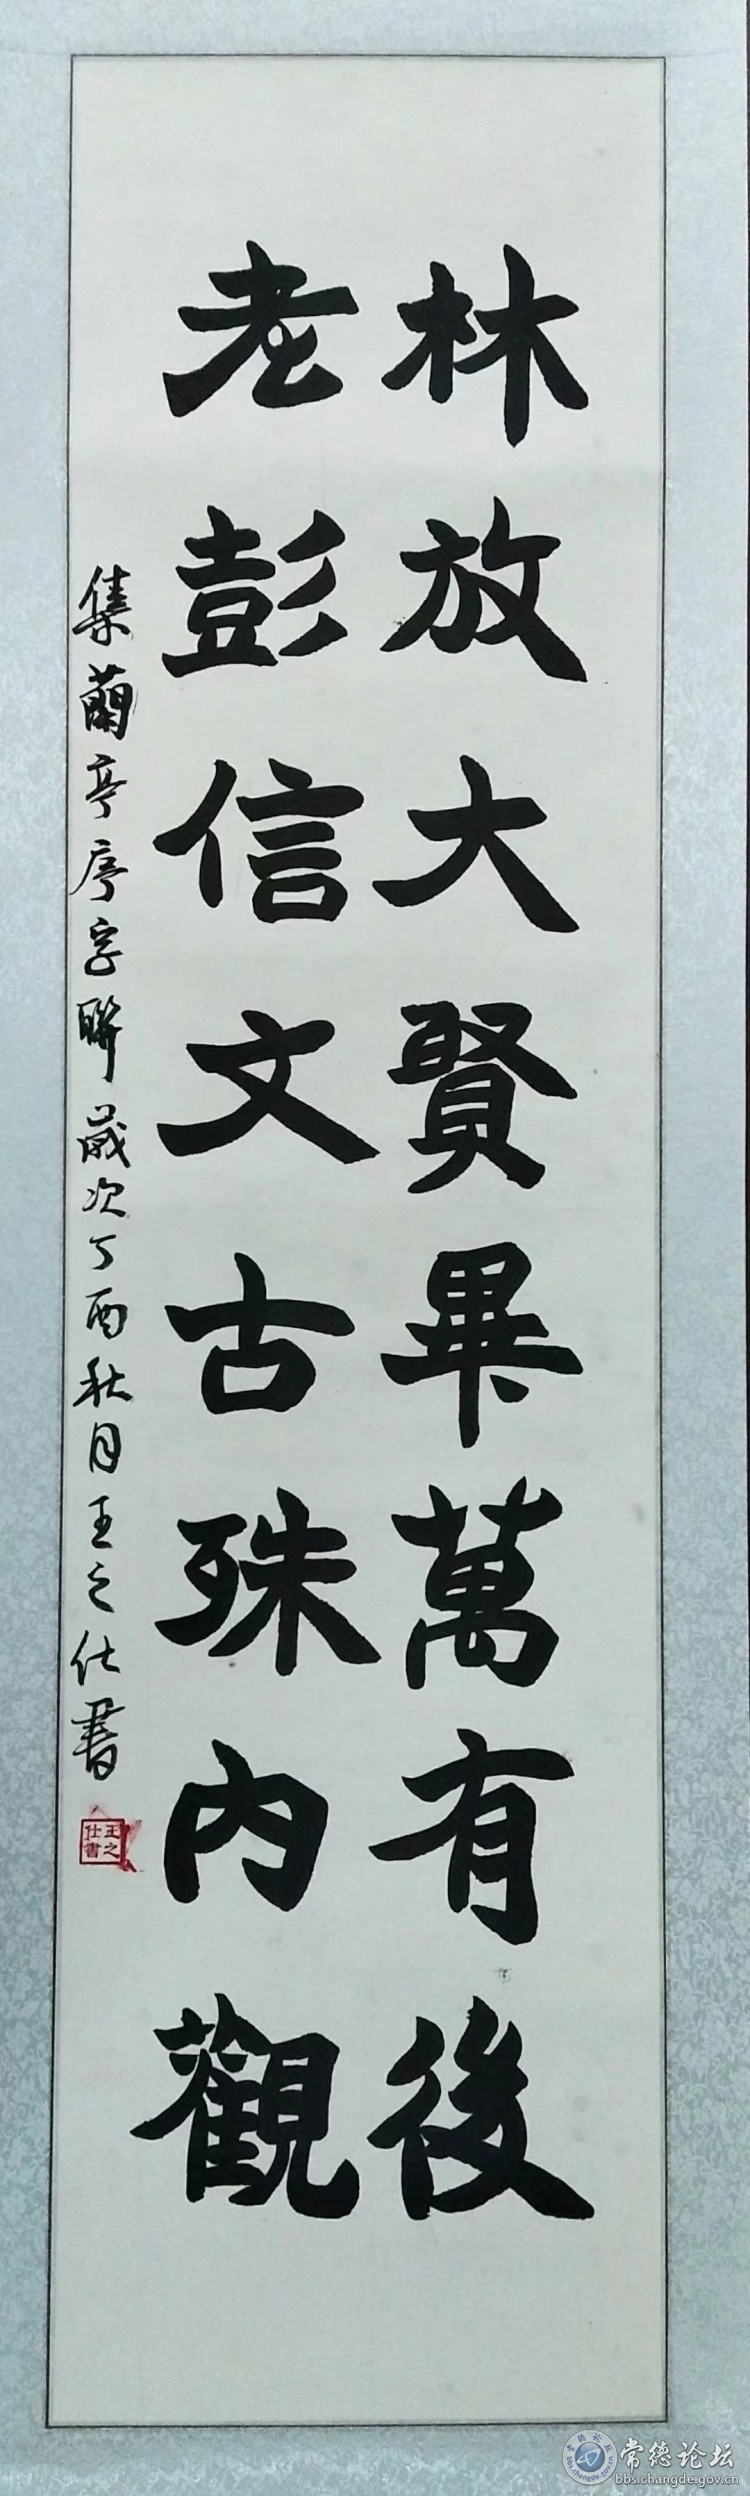 林放大賢畢萬有後
老彭信文古殊內觀
集蘭亭序字聯歲次丁酉秋月王之仕書
王之仕書
常德论坛
bbs.changde.gov.cn